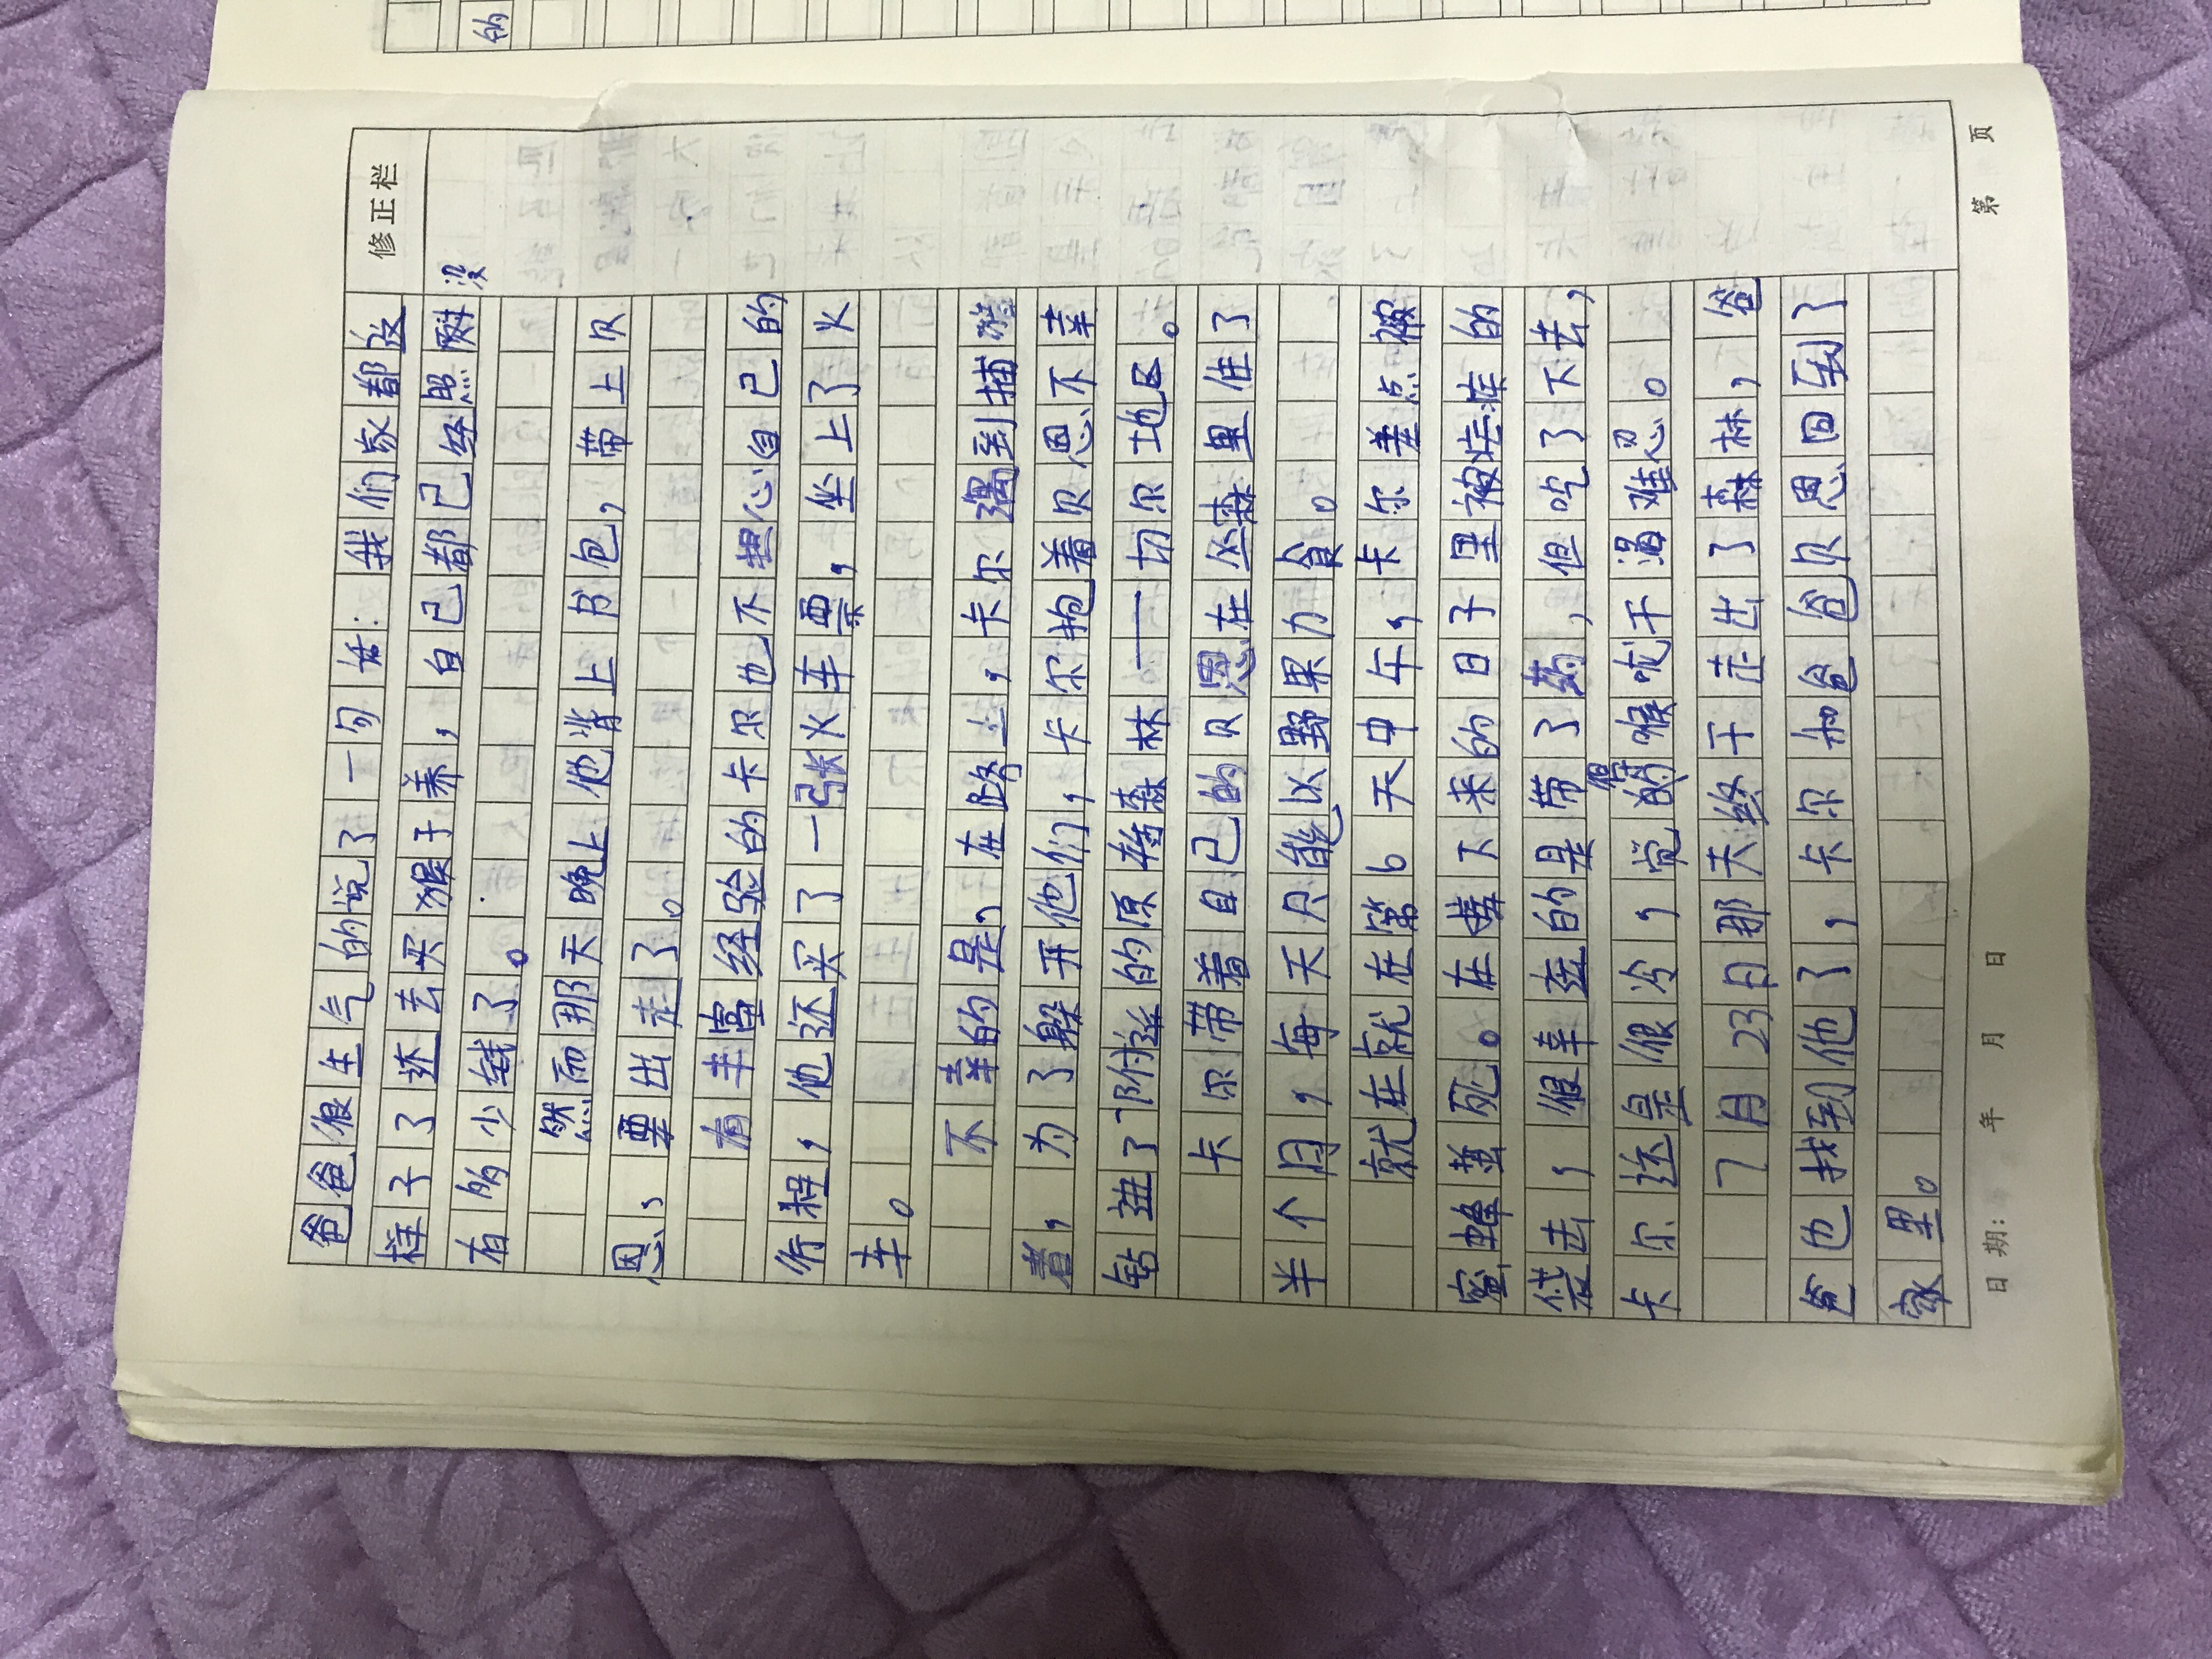 的
修正栏
爸爸很生气的说了一句话：我们家都这
样子了还去买猴子养，自己都已经照
没
有多少钱了。
然而那天晚上他背上书包，带上贝
恩，要出走了。
有丰富经验的卡尔也不担心自己的
行程，他还买了一张火车票，坐上了火
车。
不幸的是，在路上，卡尔遇到捕
者，为了躲开他们，卡尔抱着贝恩不幸
钻进了附近的原始森林——切尔地区。
卡尔带着自己的贝恩在丛森里住了
半个月，每天只能以野果力食。
就在就在第6天中午，卡尔差点被
蜜蜂蜇死。在接下来的日子里被毒蛇的
袭击，很幸运的是带了药，但吃了下去，
卡尔还是很冷，觉得的喉咙干渴难忍。
7月23日那天终于走出了森林，爸
爸也找到他了，卡尔和爸爸贝恩回到了
家里。
日期： 年 月 日 第 页